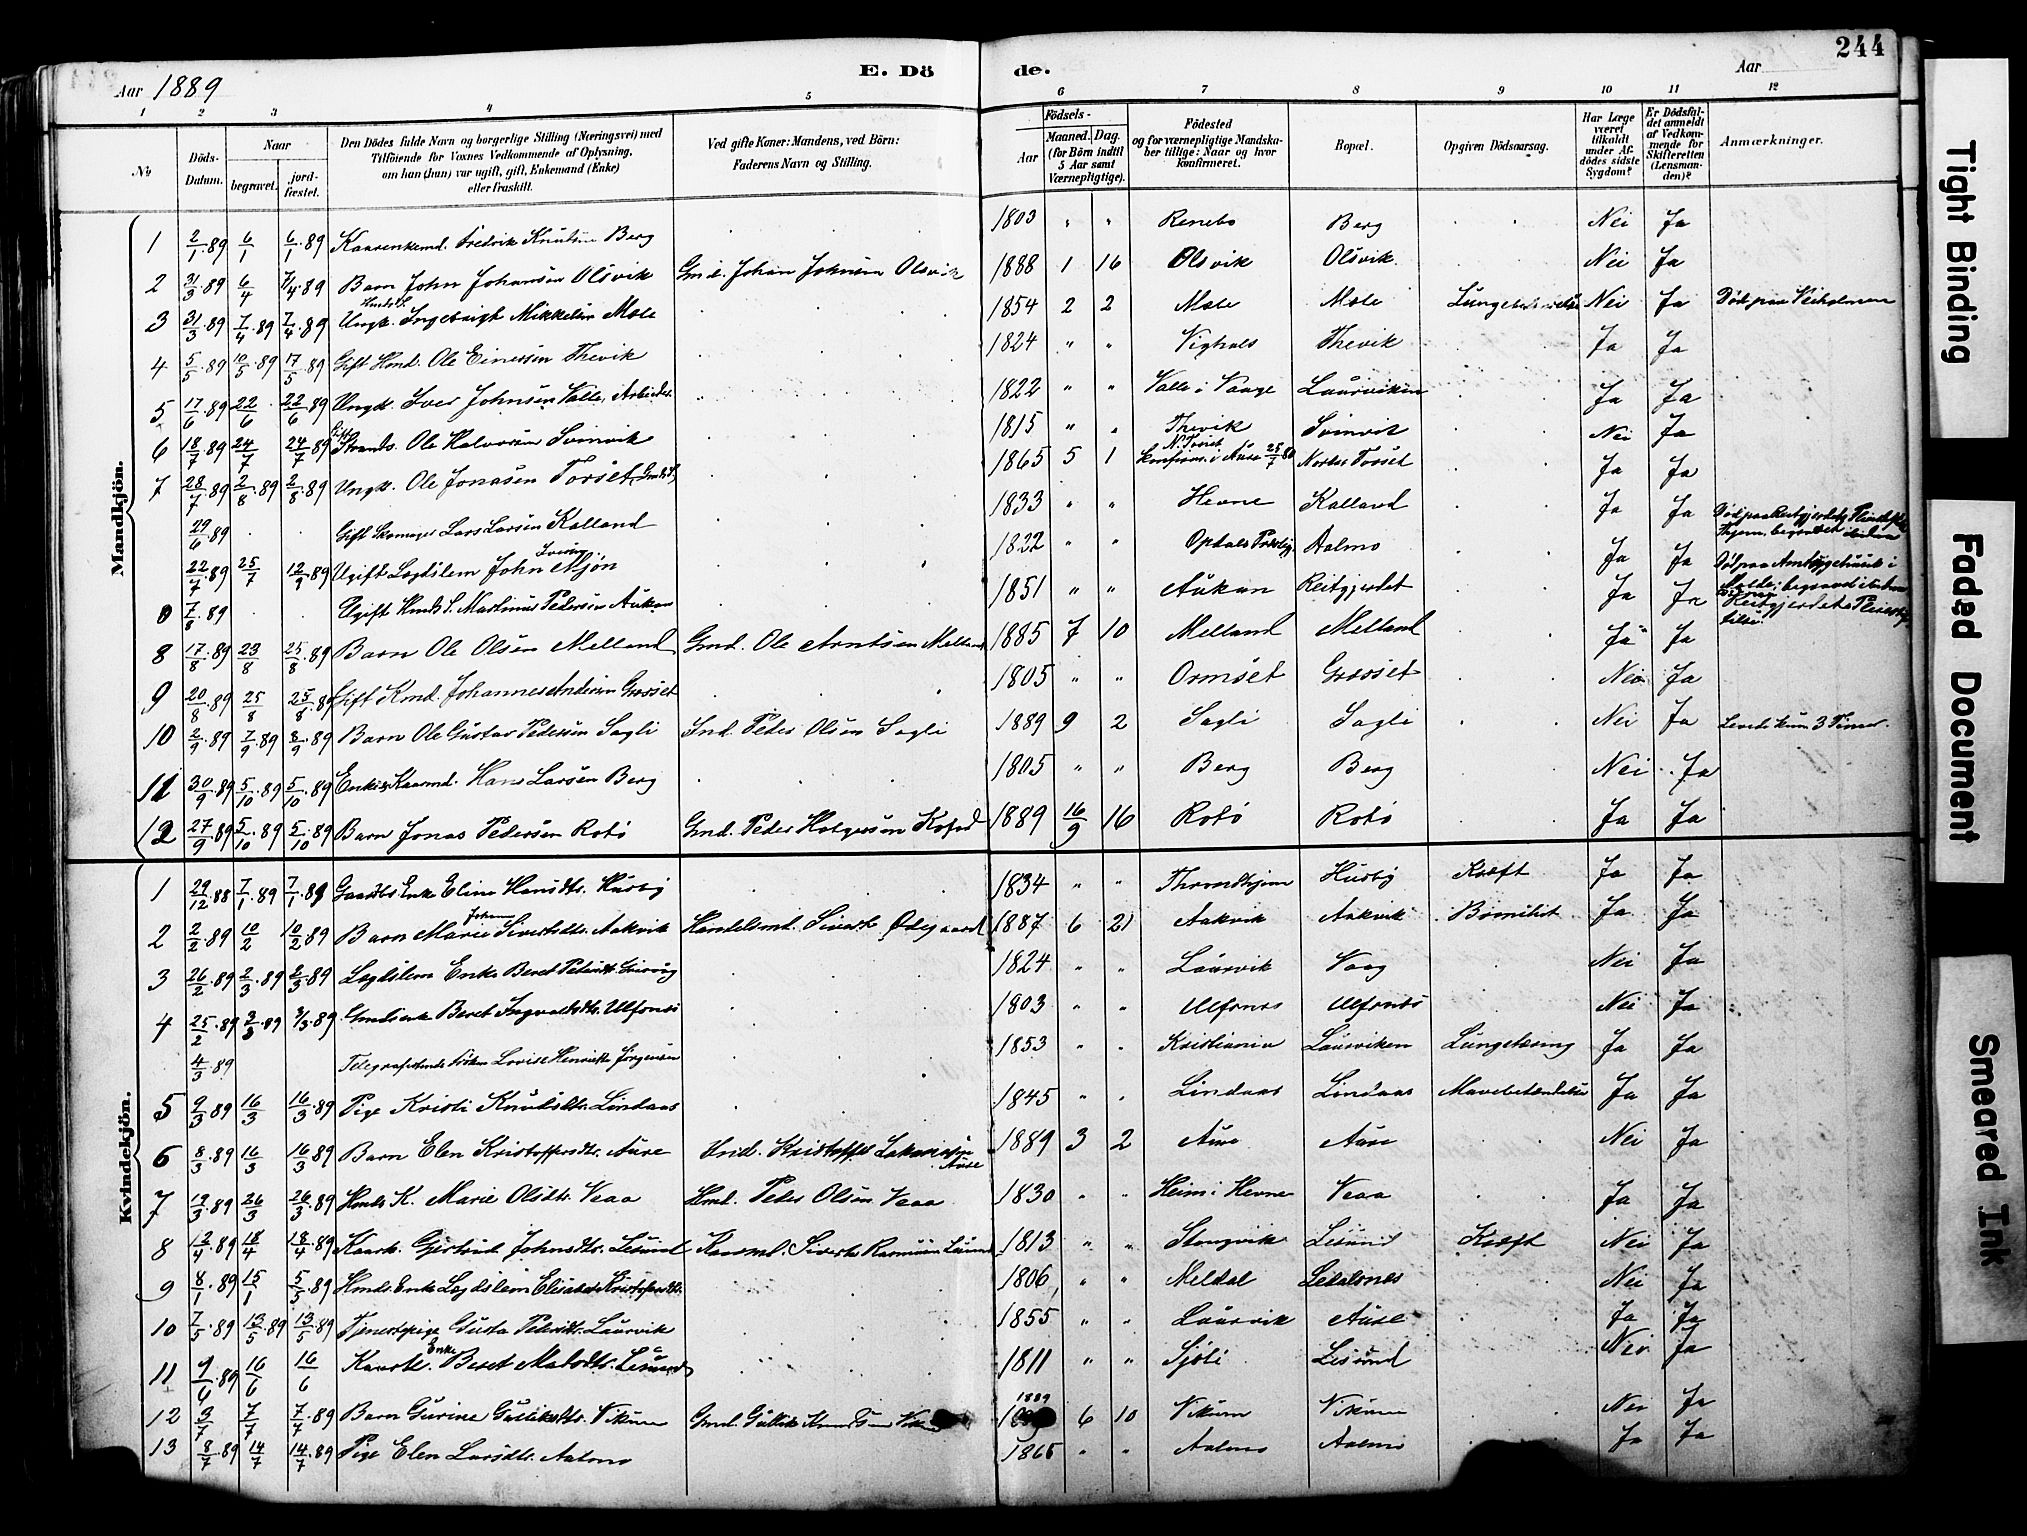 244
Aar 1889 E. Dö de. Aar
1 2 3 4 5 6 7 8 9 10 11 12
No Döds-Datum. Naar begravet. jord-fæstet. Den Dödes fulde Navn og borgerlige Stilling (Næringsvei) med Tilföiende for Voxnes Vedkommende af Oplysning, om han (hun) var ugift, gift, Enkemand (Enke) eller fraskilt. Ved gifte Koner: Mandens, ved Börn: Faderens Navn og Stilling. Födsels- Aar Maaned. Dag. (for Börn indtil 5 Aar samt Værnepligtige). Födested og for værnepligtige Mandskaber tillige: Naar og hvor konfirmeret. Bopæl. Opgiven Dödsaarsag. Har Læge været tilkaldt under Afdödes sidste Sygdom? Er Dödsfaldet anmeldt af Vedkommende for Skifteretten (Lensmanden)? Anmærkninger.
Mandkjön.
1 2/1.89 6/1 6/1.89 Fredrik Knutsen Berg 1803 " " Renebo Berg Nei Ja
2 31/3.89 6/4 7/4.89 Barn John Johansen Olsvik Gmd. Johan Johnsen Olsvik 1888 1 16 Olsvik Olsvik Nei Ja
3 31/3.89 7/4.89 7/4.89 Ungk. Ingebrigt Mikkelsen Mele 1854 2 2 Mele Mele Nei Ja Död paa Veiholmen
4 5/5.89 10/5.89 17/5.89 Gift Hmd. Ole Einersen Thevik 1824 " " Thevik Ja Ja
5 17/6.89 22/6 22/6.89 Ungk. Iver Johnsen Valle, Arbeider 1822 " " Valle i Vaage Laurviken Ja Ja
6 18/7.89 24/7 24/7.89 Gift Strands. Ole Halvorsen Svinvik 1815 " " Thevik Svinvik Nei Ja
7 28/7.89 2/8.89 2/8.89 Ungk. Ole Jonasen Torset, Gmds S. 1865 5 1 N. Torset konfirm. i Aure 25/7 80 Nordre Torset Ja Ja
29/6.89 Gift Skomager Lars Larsen Kalland 1833 " " Hevne Kalland Ja Ja
22/7.89 25/7 12/9.89 Ugift Lægdslem John Mjön 1822 " " Opdals Præstg. Aalmo Ja Ja
7/8.89 Ugift Hmds S. Martinus Pedersen Aukan 1851 " " Aukan Reitgjerdet Ja Ja
8 17/8.89 23/8 25/8.89 Barn Ole Olsen Melland Gmd. Ole Arntsen Melland 1885 7 10 Melland Melland Ja Ja
9 20/8.89 25/8 25/8.89 Gift Kmd. Johannes Andersen Grosset 1805 " " Ormset Grosset Nei Ja
10 2/9.89 7/9.89 8/9.89 Barn Ole Gustav Pedersen Sagli Ind. Peder Olsen Sagli 1889 9 2 Sagli Sagli Nei Ja Levede kun 3 Timer
11 30/9.89 5/10.89 5/10.89 Hans Larsen Berg 1805 " " Berg Berg Nei Ja
12 27/9.89 5/10.89 5/10.89 Barn Jonas Pedersen Rotö Gmd. Peder Holgersen 1889 16/9 16 Rotö Rotö Ja Ja
Kvindekjön.
1 29/12.88 7/1.89 7/1.89 Enke Eline Hansdtr. Husby 1834 " " Throndhjem Husby Kræft Ja Ja
2 2/2.89 10/2 10/2.89 Barn Marie Sivertsdtr. Aakvik Handelsmd. Sivert Ødegaard 1887 6 21 Aakvik Aakvik Ja Ja
3 26/2.89 2/3.89 2/3.89 Lægdslem Enke Beret Pedersdtr. 1824 " " Laurvik Vaag Nei Ja
4 25/2.89 3/3.89 3/3.89 Beret Ingvaldsdtr. Ulfsnes 1803 " " Ulfsnes Ulfsnes Nei Ja
4/3.89 Telegrafistinde Fröken Lovise Henriette Jörgensen 1853 " " Kristiania Laurviken Lungetæring Ja Ja
5 9/3.89 16/3 16/3.89 Pige Kristi Knudsdtr. Lindaas 1845 " " Lindaas Lindaas Mavebetændelse Ja Ja
6 8/3.89 16/3 16/3.89 Barn Elen Kristoffersdtr. Aure Ind. Kristoffer Aure 1889 3 2 Aure Aure Nei Ja
7 19/3.89 26/3 26/3.89 Hmds K. Marie Olsdtr. Veaa Hmd. Peder Olsen Veaa 1830 " " Heim i Hevne Veaa Ja Ja
8 12/4.89 18/4 18/4.89 Gjertrud Johnsdtr. Lesund Sivert Rasmusen Lesund 1813 " " Stangvik Lesund Kræft Nei Ja
9 8/1.89 15/1 5/5.89 Hmds. Enke Lægdslem Elisabet Kristoffersdtr. 1806 " " Meldal Ledalsnes Nei Ja
10 7/5.89 13/5.89 13/5.89 Tjenestepige Gusta Pedersdtr. Laurvik 1855 " " Laurvik Aure Ja Ja
11 9/6.89 16/6 16/6 Enke Beret Lesund 1811 " " Sjöli Lesund Nei Ja
12 3/7 7/7 7/7.89 Barn Gurine Gulliksdtr. Vikum Gmd. Gullik Knudsen 1889 6 10 Vikum Vikum Nei Ja
13 8/7.89 14/7 14/7.89 Pige Elen Larsdtr. Aalmo 1865 " " Aalmo Aalmo Ja Ja
Tight Binding
Faded Document
Smeared Ink